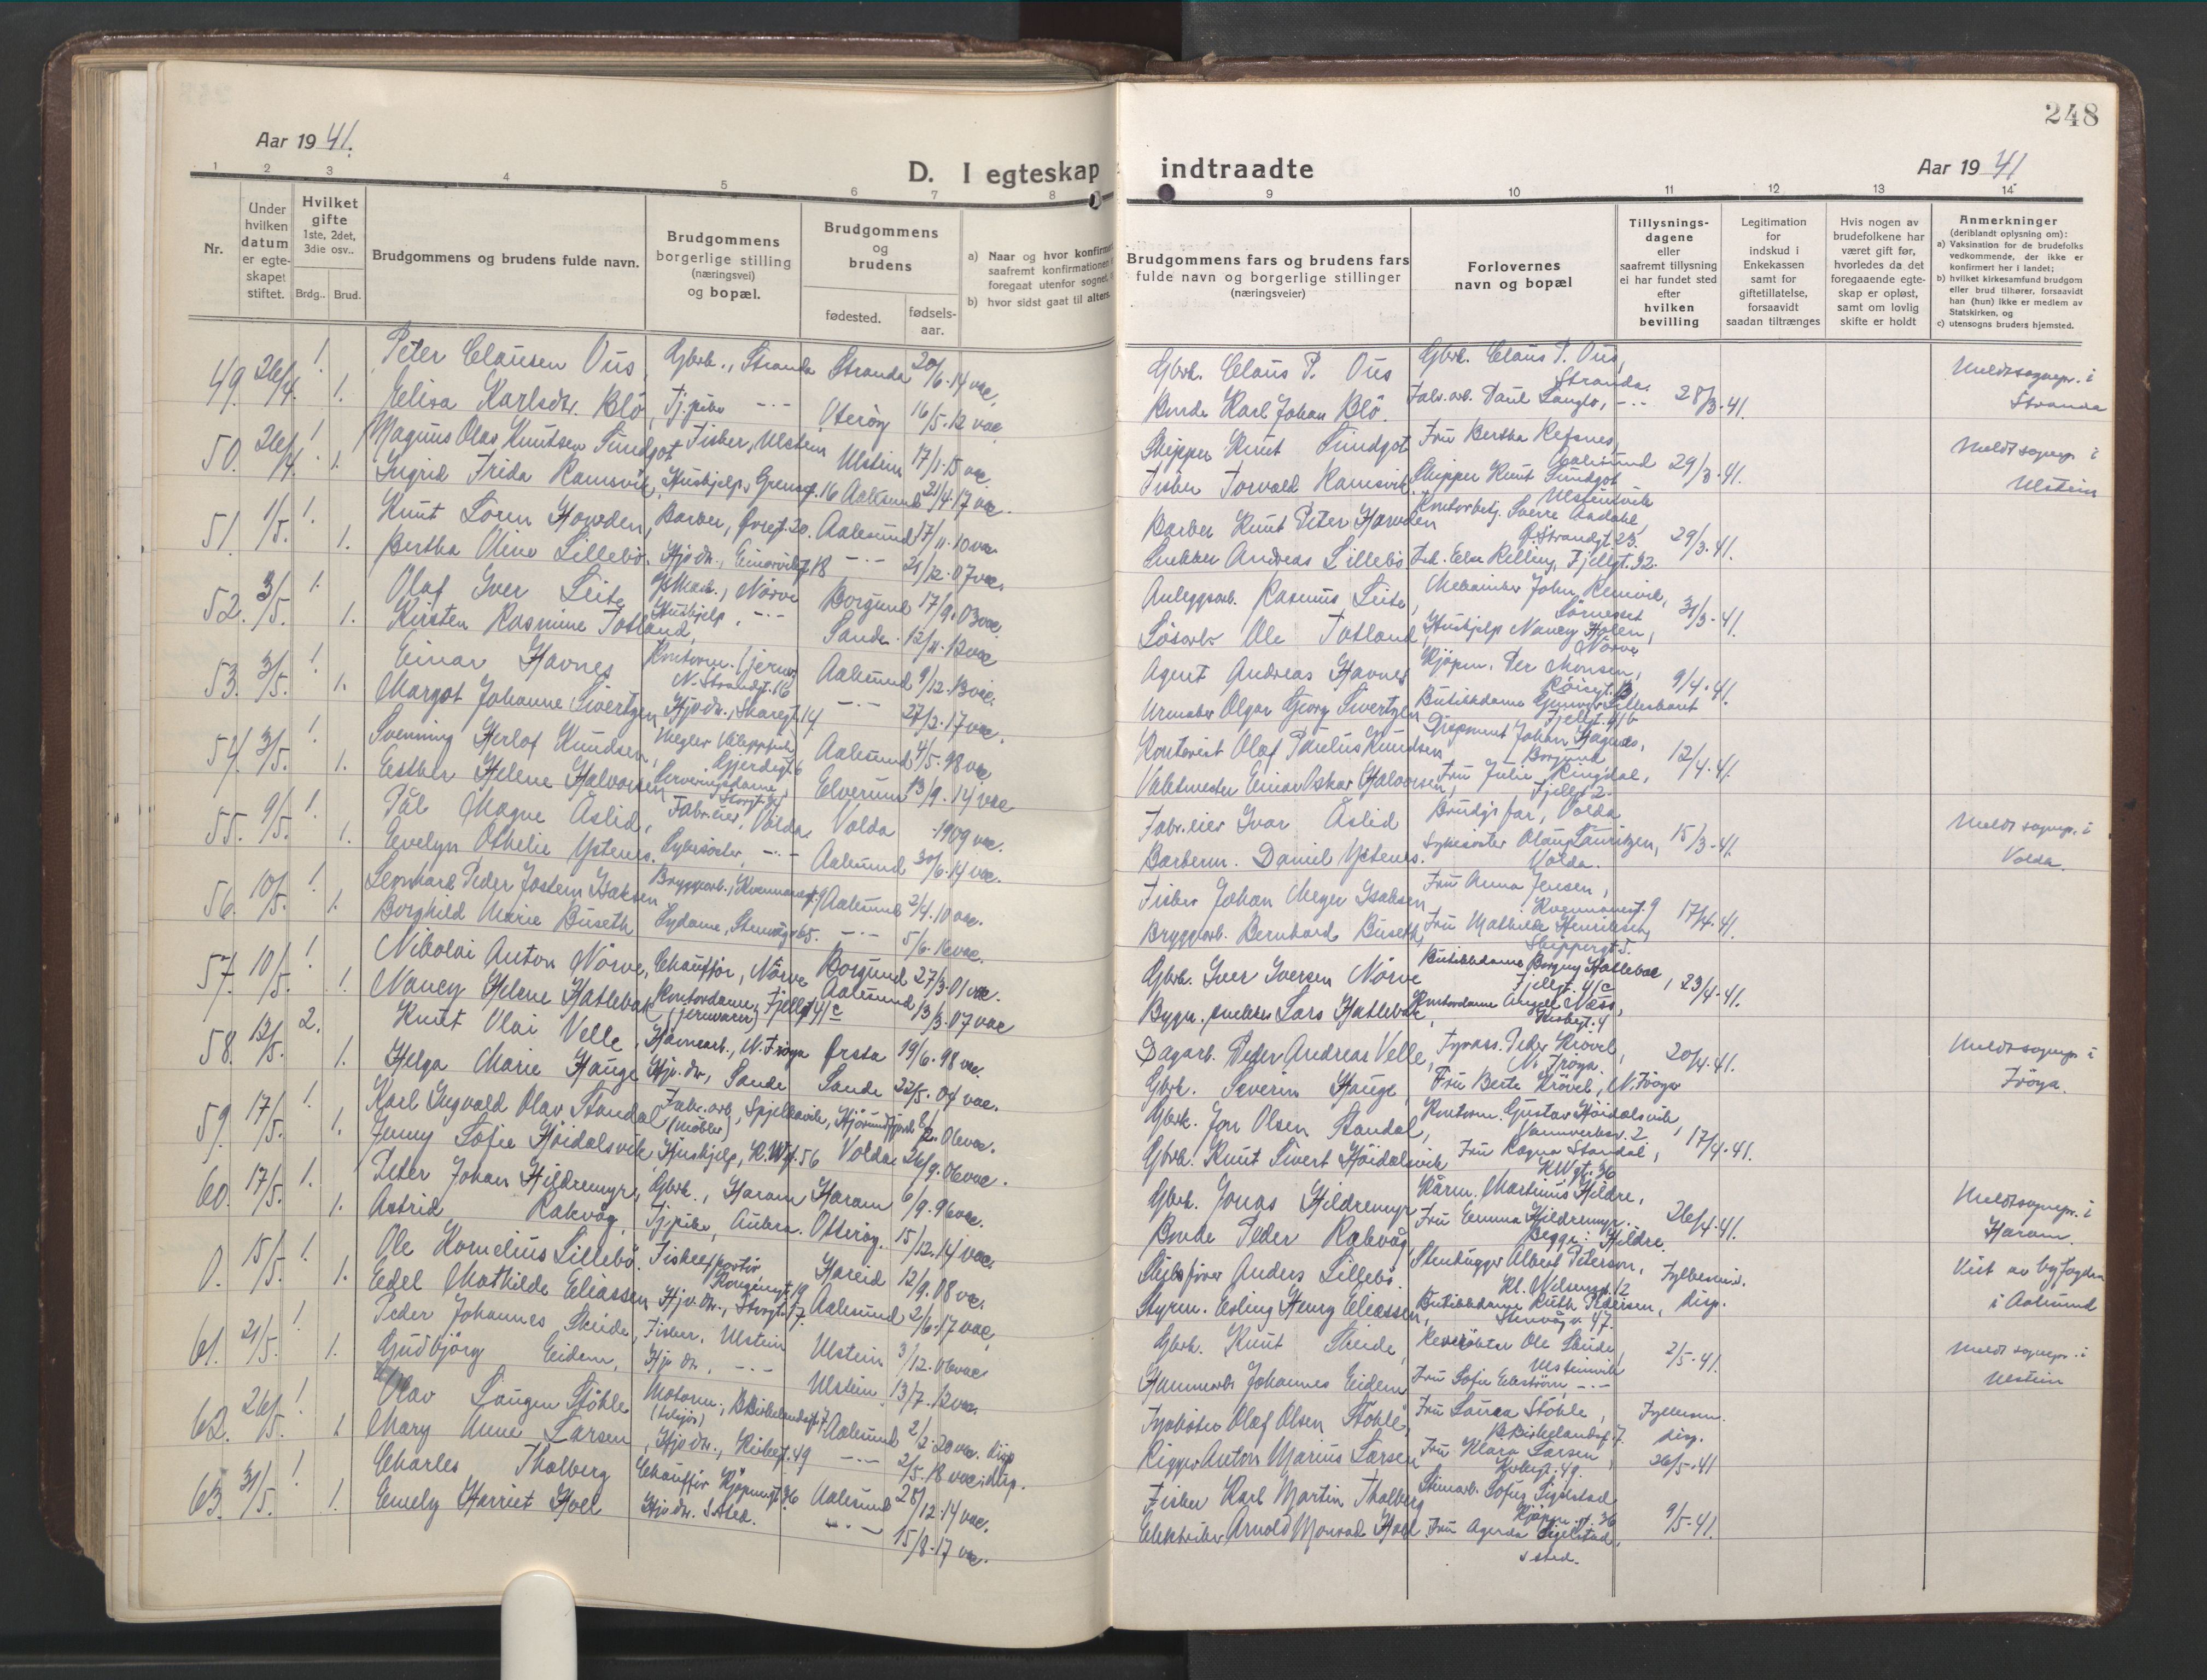 Aar 1941.
D. I egteskap
1 2 3 4 5 6 7 8
Nr.
Under hvilken datum er egteskapet stiftet.
Hvilket gifte 1ste, 2det, 3die osv..
Brdg.. Brud.
Brudgommens og brudens fulde navn.
Brudgommens borgerlige stilling (næringsvei) og bopæl.
Brudgommens og brudens
fødested. fødselsaar.
a) Naar og hvor
saafremt konfirmationen
foregaat utenfor sognet,
b) hvor sidst gaat til alters.
49. 26/4. 1. Peter Clausen Ous, Gbrk., Stranda Stranda 20/6-14 vac.
1. Elisa Karlsdtr. Blø, Tj.pike -"- Oterøy 16/5-12 vac.
50. 26/4. 1. Magnus Olav Knutsen Sundgot Fisker, Ulstein Ulstein 17/1-15 vac.
1. Ingrid Frida Ramsvik, Hushjelp, 16 Aalesund 21/4-17 vac.
51. 1/5. 1. Knut Loren Howden, Barber, 20. Aalesund 17/11-10 vac.
1. Bertha Oline Lillebø. Hjv.dtr., 18 -"- 21/12-07 vac.
52. 3/5. 1. Olaf Iver Leite Nørve Borgund 17/9-03 vac.
1. Kirsten Rasmine Totland, Hushjelp, -"- Sande 12/11-12 vac.
53. 3/5. 1. Einar Havnes Kontorm. N. Strandgt. 16 Aalesund 9/12-13 vac.
1. Margot Johanne Sivertzen Hjv.dtr., Skaregt. 14 -"- 27/2-17 vac.
54. 3/5. 1. Svenning Herlof Knudsen, Megler Gjerdegt. 6 Aalesund 4/5-98 vac
1. Esther Helene Halvorsen Serveringsdame, Storgt. Elverum 13/9-14 vac
55. 9/5. 1. Pål Magne Åslid, Fabr.eier, Volda Volda 1909 vac.
1. Evelyn Othelie Ystenes. Sykesøster, -"- Aalesund 30/6-14 vac.
56. 10/5. 1. Leonhard Peder Jostein Isaksen Bryggearb., 9 Aalesund 2/4-10 vac.
1. Borghild Marie Buseth Sydame, 65. -"- 5/6-16 vac.
57. 10/5. 1. Nikolai Anton Nørve, Chauffør, Nørve Borgund 27/3-01 vac.
1. Nancy Helene Hatlebak Kontordame (jernvarer) Fjellgt. 41c Aalesund 13/3-07 vac
58. 13/5. 2. Knut Olai Velle, Havnearb., N. Frøya Ørsta 19/6-98 vac.
1. Helga Marie Hauge Hjv.dtr., Sande Sande 22/5-04 vac.
59. 17/5. 1. Karl Ingvald Olav Standal Fabr.arb. (møbler), Spjelkavik, Hjørundfjord 06 vac.
1. Jenny Sofie Høidalsvik Hushjelp, 56 Volda 26/9-06 vac.
60. 17/5. 1. Peter Johan Hildremyr, Gbrk., Haram Haram 6/9-96 vac.
1. Astrid Rakvåg, Tj.pike, Aukra. Otterøy. 15/12-14 vac.
0. 15/5. 1. Ole Kornelius Lillebø. Fiskeexportør Kongensgt. 19 Hareid 12/9-08 vac.
1. Edel Mathilde Eliassen Hjv.dtr., Storgt. 17. Aalesund 2/6-17 vac.
61. 21/5. 1. Peder Johannes Skeide, Fisker, Ulstein Ulstein 3/12-06 vac.
1. Gudbjørg Eidem, Hjv.dtr., -"- Ulstein 13/7-12 vac.
62. 26/5. 1. Olav Støhle Motorm., 7. Aalesund 2/2-20 vac. disp.
1. Mary Anne Larsen, Hjv.dtr., 49 -"- 2/5-18 vac. disp.
63. 31/5. 1. Charles Tholberg Chauffør Kjøpmgt. 36 Aalesund 28/12-14 vac.
1. Emely Harriet Hoel Hjv.dtr. s.sted. -"- 15/8-17 vac.
248
indtraadte
Aar 1941
9 10 11 12 13 14
Brudgommens fars og brudens fars fulde navn og borgerlige stillinger (næringsveier)
Forlovernes navn og bopæl
Tillysningsdagene eller saafremt tillysning ei har fundet sted efter hvilken bevilling
Legitimation for indskud i Enkekassen samt for giftetillatelse, forsaavidt saadan tiltrænges
Hvis nogen av brudefolkene har været gift før, hvorledes da det foregaaende egteskap er opløst, samt om lovlig skifte er holdt
Anmerkninger (deriblandt oplysning om):
a) Vaksination for de brudefolks vedkommende, der ikke er konfirmert her i landet;
b) hvilket kirkesamfund brudgom eller brud tilhører, forsaavidt han (hun) ikke er medlem av Statskirken, og
c) utensogns bruders hjemsted.
Gbrk. Claus P. Ous Gbrk. Claus P. Ous, Stranda. Meldt sognepr. i
Bonde Karl Johan Blø. Fabr.arb. Paul Langlo, -"- 28/3-41. Stranda
Skipper Knut Sundgot Fru Bertha Refsnes, Aalesund 29/3-41. Meldt sognepr. i
Fisker Torvald Ramsvik. Skipper Knut Sundgot Ulsteinvik Ulstein
Barber Knut Peter Howden Kontorbetj. Sverre Aadahl, Ø. Strandgt. 25. 29/3-41.
Snekker Andreas Lillebø Frk. Else Relling, Fjellgt. 32.
Anleggsarb. Rasmus Leite, Mekaniker John 31/3-41.
Ole Totland, Hushjelp Nancy Holen, Nørve
Agent Andreas Havnes Kjøpm. Per Monsen, 9/4-41.
Urmaker Olgar Georg Sivertzen Butikkdame Fjellgt.
Kontorist Olaf Paulus Knudsen Disponent Johan Hagnæs, Borgund 12/4-41.
Einar Oskar Halvorsen, Fru Julie Ringdal, Fjellgt 2.
Fabr.eier Ivar Åslid Brudgs far, Volda 15/3-41. Meldt sognepr. i
Barberm. Daniel Ystenes. Sykesøster Olaug Lauritzen, Volda. Volda.
Fisker Johan Meyer Isaksen Fru Anna Jensen, 9 17/4-41.
Bryggearb. Bernhard Buseth, Fru Mathilde Henriksen, Skippergt. 5.
Gbrk. Iver Iversen Nørve Butikkdame Borgny Hatlebak, Fjellgt. 41c 23/4-41.
Bygn.snekker Lars Hatlebak, Kontordame Næss,
Dagarb. Peder Andreas Velle, Fyrass. Peder Krøvel, N. Frøya. 20/4-41. Meldt sognepr. i
Gbrk. Severin Hauge, Fru Berta Krøvel, N. Frøya Frøya.
Gbrk. Jon Olsen Standal, Kontorm. Gustav Høidalsvik, 17/4-41.
Gbrk. Knut Sivert Høidalsvik Fru Ragna Standal, 36
Gbrk. Jonas Hildremyr Kårm. Martinus Hildre, 26/4-41. Meldt sognepr. i
Bonde Peder Rakvåg, Fru Emma Hildremyr. Begge: Hildre. Haram.
Skibsfører Anders Lillebø. Stenhugger Albert Petersen, Fylkesm. Viet av byfogden
Styrm. Erling Henry Eliassen, Butikkdame Ruth Pedersen, 47. disp. i Aalesund
Gbrk. Knut Skeide, Ole Skeide, Ulsteinvik 2/5-41. Meldt sognepr. i
Johannes Eidem Fru Sofie Ekstrøm, -"- Ulstein
Fyrbøter Olaf Olsen Støhle, Fru Laura Støhle, 7. Fylkesm. disp.
Rigger Anton Marius Larsen Fru Klara Larsen, 49. 26/5-41
Fisker Karl Martin Tholberg Stenarb. Sofus 36 9/5-41.
Elektriker Arnold Monrad Hoel Fru s.sted.